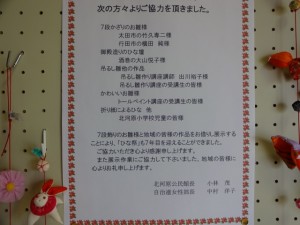 次の方々よりご協力を頂きました。
7段かざりのお雛様
太田市の竹久喜二様
行田市の權田 純様
御殿造りのひな壇
酒巻の大山悦子様
吊るし雛他の作品
吊るし雛作り講座講師 出川裕子様
吊るし雛作り講座の受講生の皆様
かわいいお雛様
トールペイント講座の受講生の皆様
折り紙によるひな 他
北河原小学校児童の皆様
7段飾りのお雛様と地域の皆様の作品をお借りし展示する
ことにより、「ひな祭」も7年目を迎えることができました。
ご協力いただき心より感謝申し上げます。
また展示作業にご協力して下さいました、地域の皆様に
心よりお礼申し上げます。
北河原公民館長 小林 茂
自治連女性部長 中村 洋子